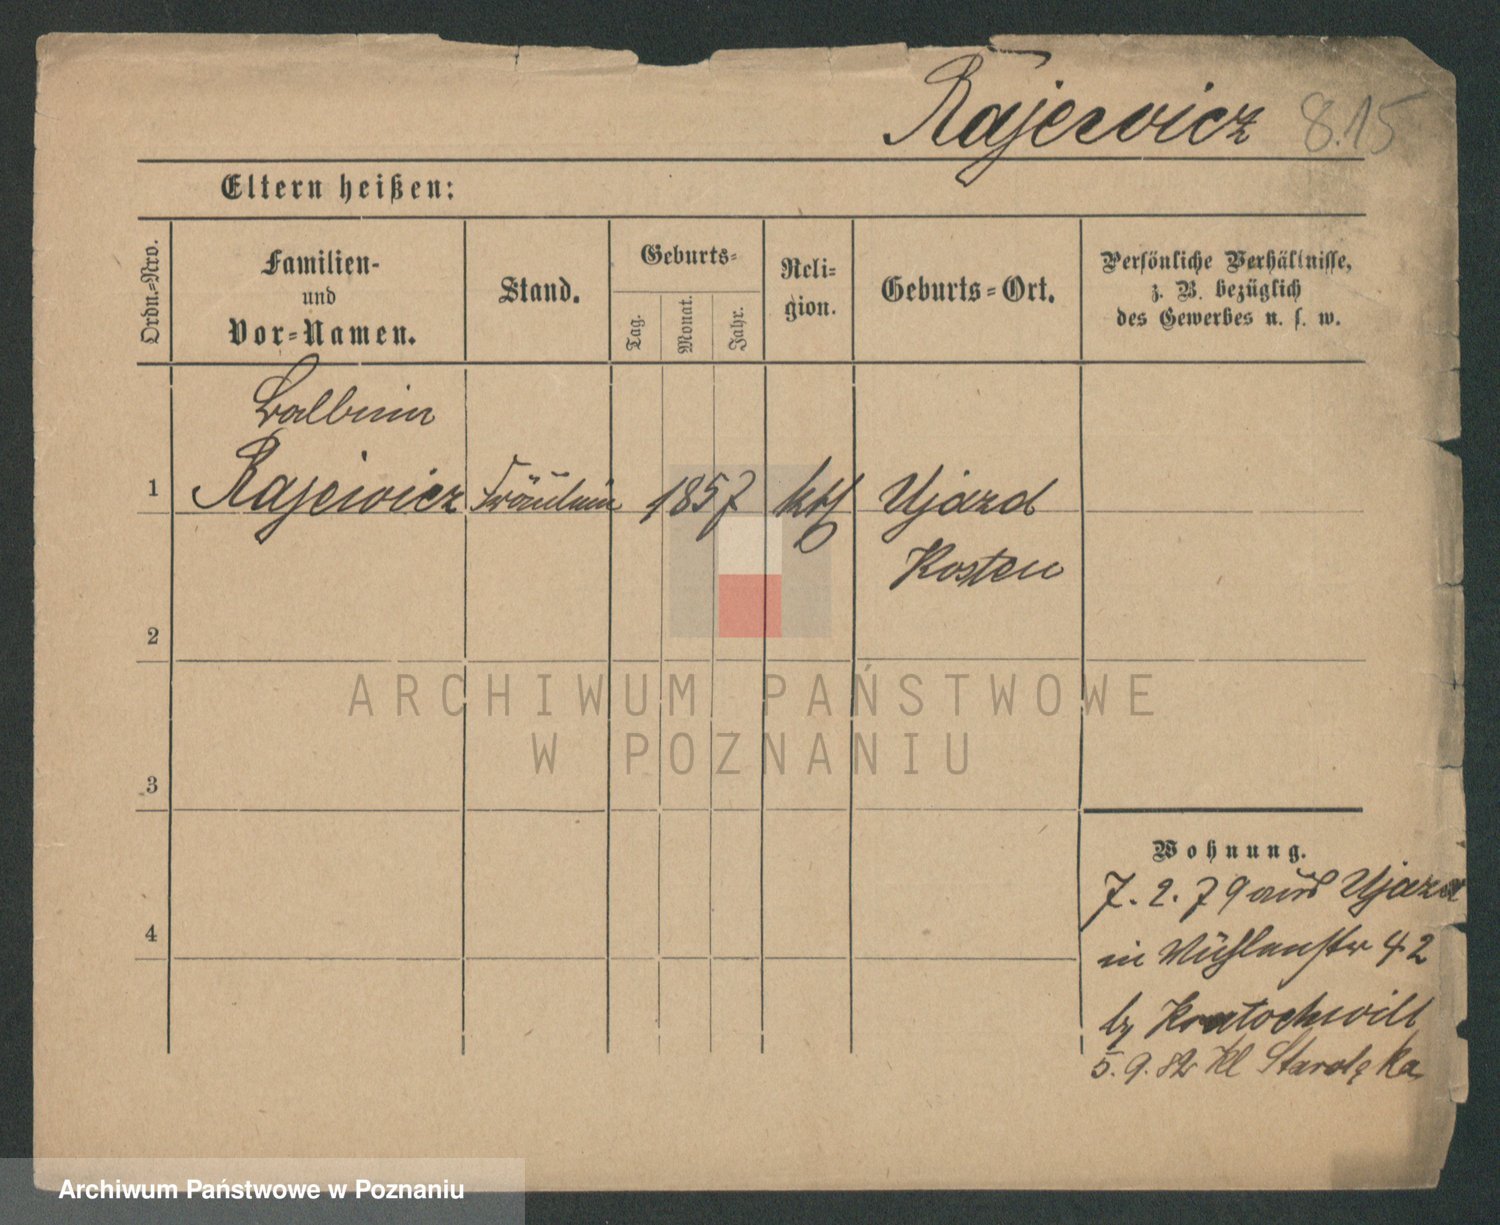 Rajewicz 8.15
Eltern heißen:
Ordn.-Nro.
Familien-
und
Vor-Namen.
Stand.
Geburts-
Tag.
Monat.
Jahr.
Reli-
gion.
Geburts-Ort.
Persönliche Verhältnisse,
z. B. bezüglich
des Gewerbes u. s. w.
1
Rajewicz Fräulein 1857 kth Ujazd
Kosten
2
ARCHIWUM PAŃSTWOWE
W POZNANIU
3
Wohnung.
7. 2. 79 aus Ujazd
in Mühlenstr 42
by Kratochwill
5. 9. 82 Kl Starołęka
4
Archiwum Państwowe w Poznaniu